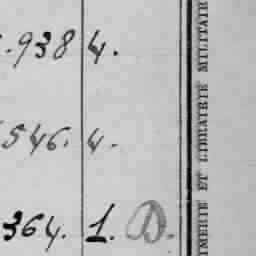 .938 4.
546. 4.
364. 1. D.
IMERIE ET LIBRAIRIE MILITAIR